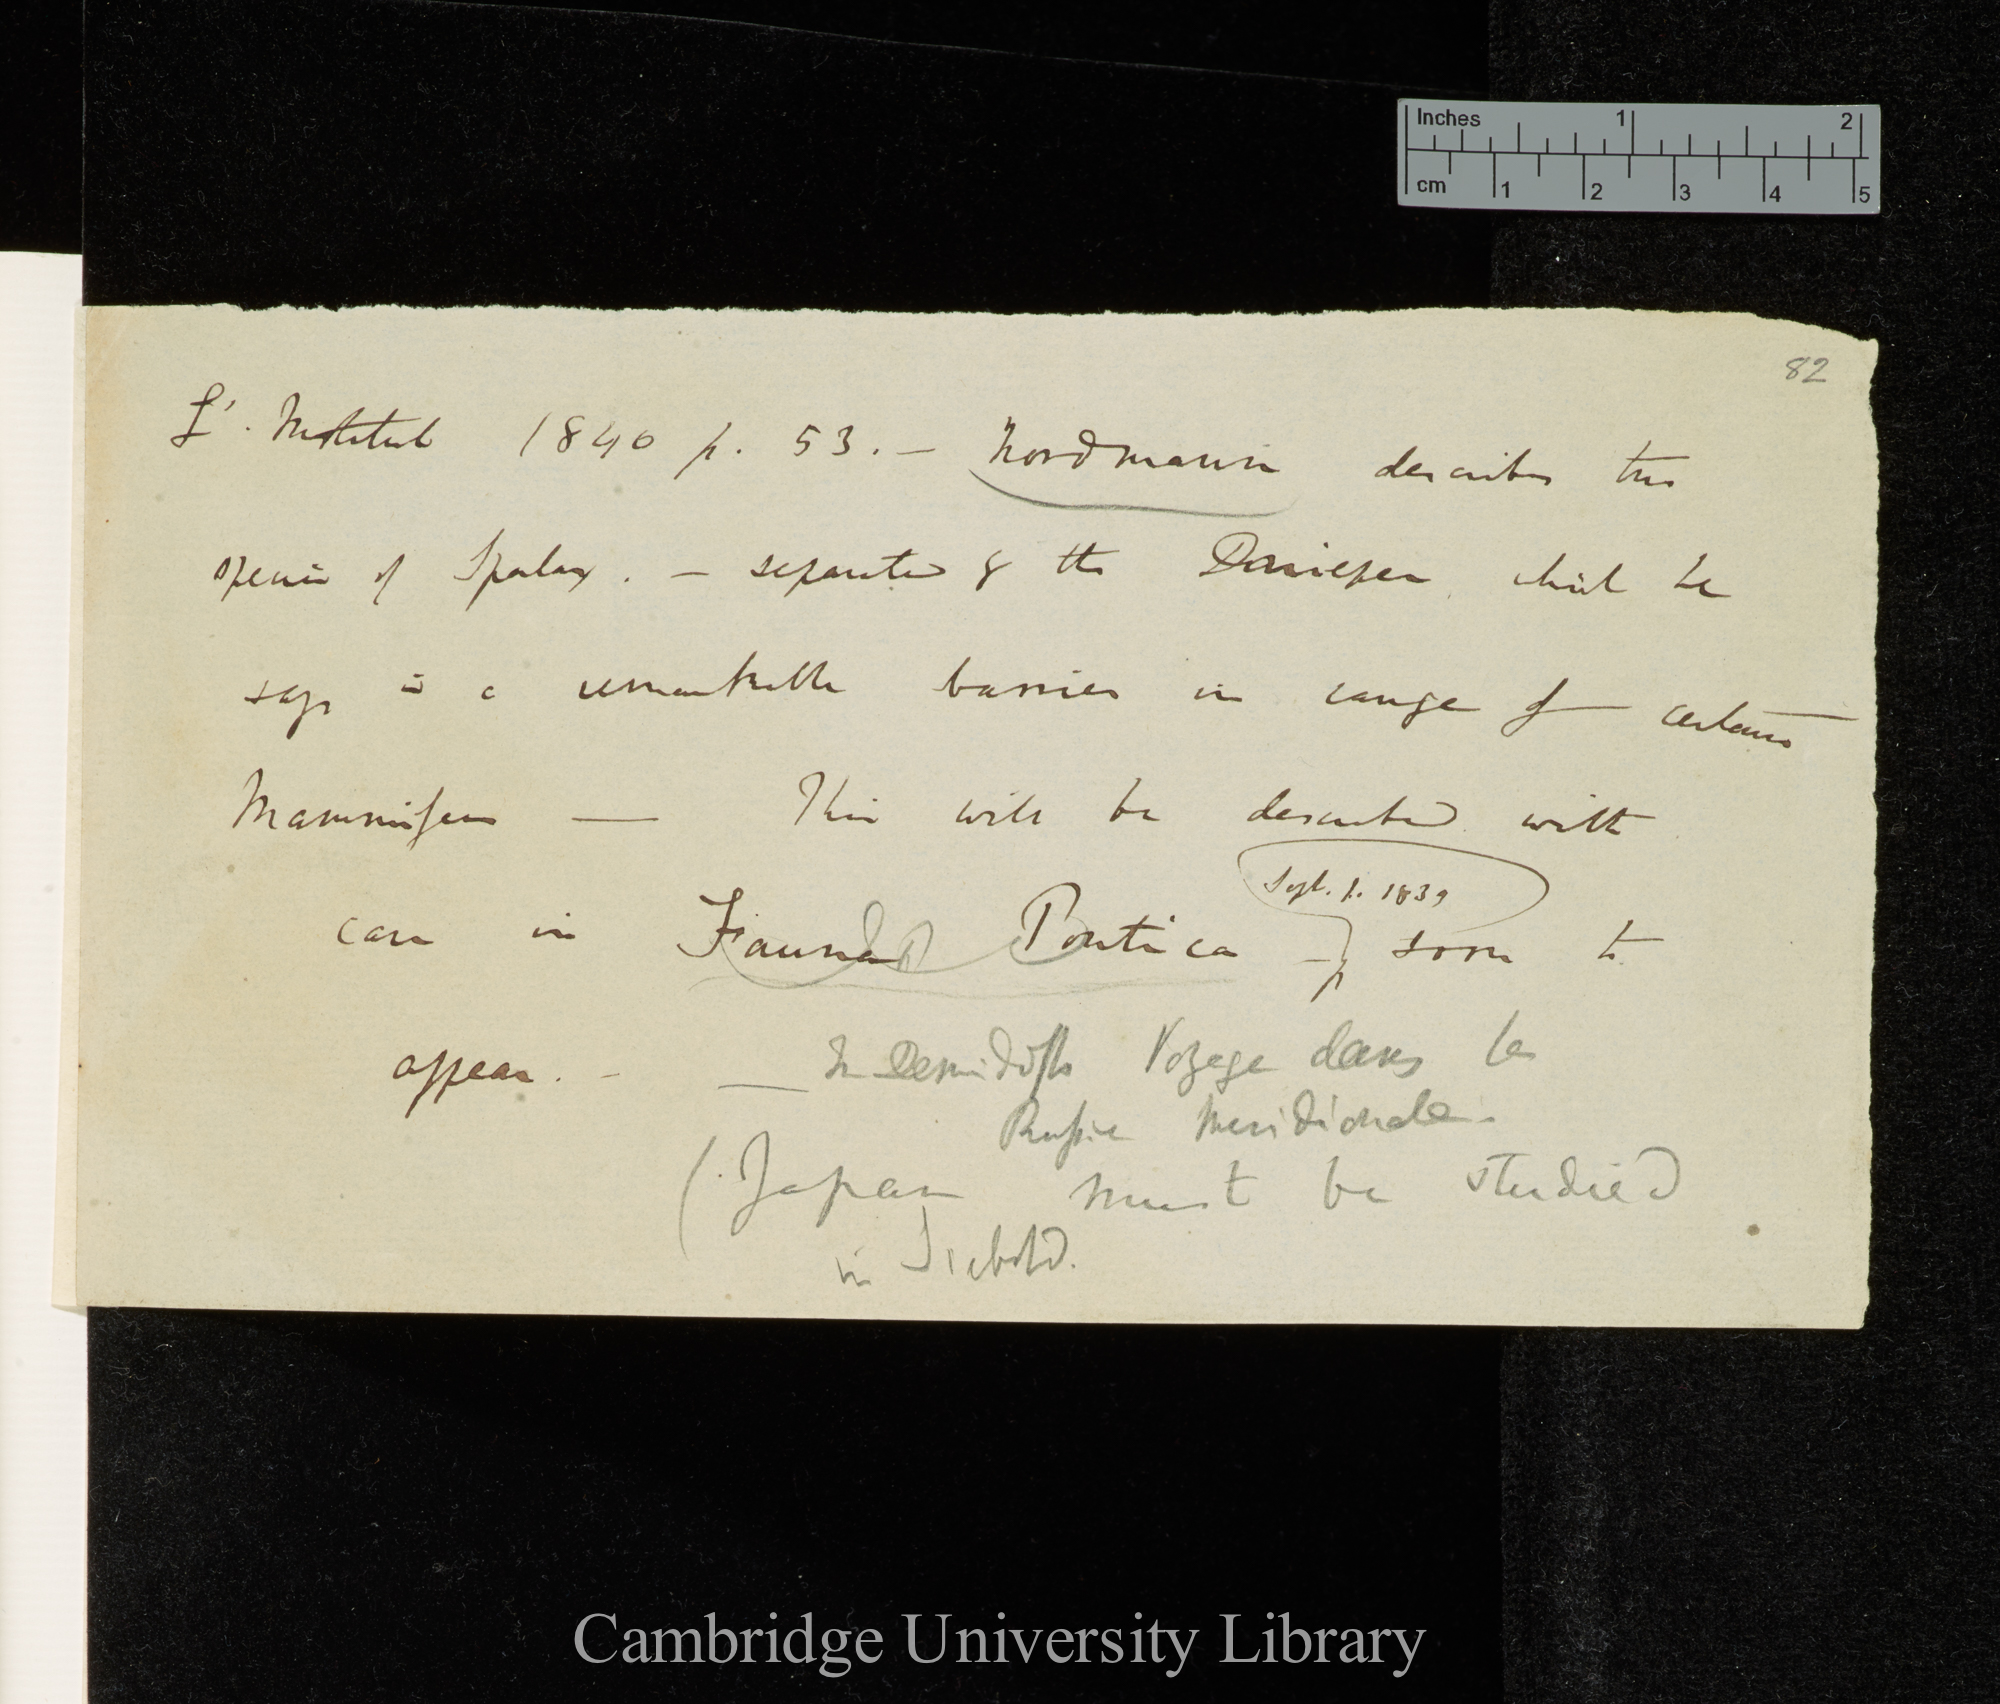 Inches 1 2
cm 1 2 3 4 5
82
L'. Institut 1840 p. 53. — Nordmann describes two
species of Spalax. — separated by the Dnieper which he
says is a remarkable barrier in range of certain
Mammifers — This will be described with
Sept. 1. 1839
care in Fauna Pontica — soon to
appear. — — In Demidoffs Voyage dans la
Russie Meridionale.
(Japan must be studied
in Siebold.
Cambridge University Library